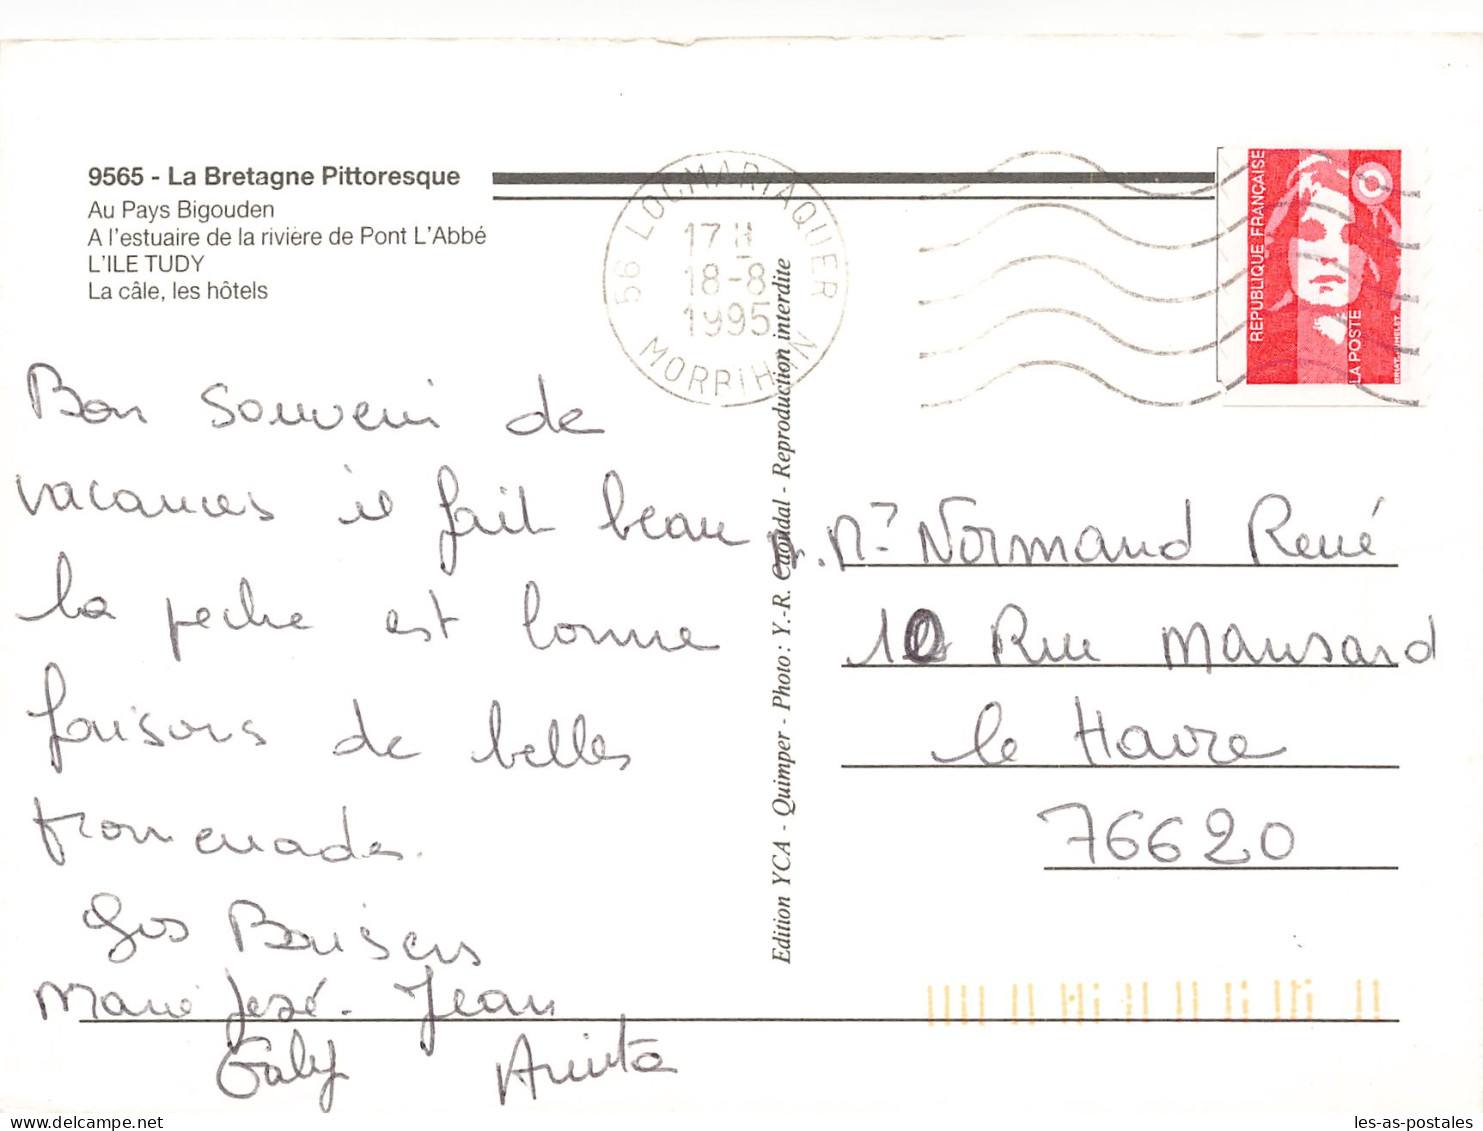 9565 - La Bretagne Pittoresque
Au Pays Bigouden
A l'estuaire de la rivière de Pont L'Abbé
L'ILE TUDY
La câle, les hôtels
56 LOCMARIAQUER
17 H
18-8
1995
MORBIHAN
REPUBLIQUE FRANÇAISE
LA POSTE
Bon souvenir de
vacances il fait beau
la peche est bonne
faisons de belles
promenades.
Gos Baisers
Marie José - Jean
Gaby Anita
Edition YCA - Quimper - Photo : Y.-R. Caoudal - Reproduction interdite
Normand René
10 Rue Mansard
le Havre
76620
les-as-postales